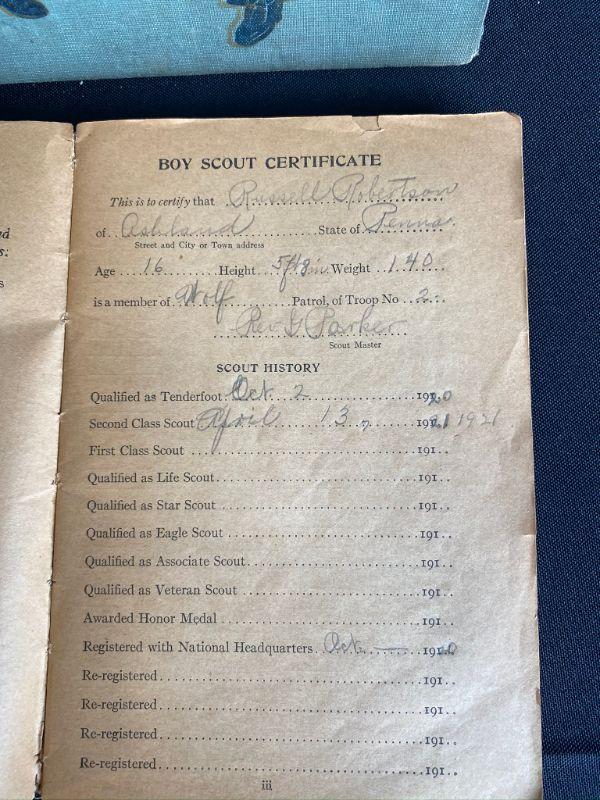 BOY SCOUT CERTIFICATE
This is to certify that Russell Robertson
of Ashland State of Penna.
Street and City or Town address
Age 16 Height 5ft 8in Weight 140
is a member of Wolf Patrol, of Troop No 2
Rev G Parker
Scout Master
SCOUT HISTORY
Qualified as Tenderfoot Oct. 2 1920
Second Class Scout April 13, 1921 1921
First Class Scout 191
Qualified as Life Scout 191
Qualified as Star Scout 191
Qualified as Eagle Scout 191
Qualified as Associate Scout 191
Qualified as Veteran Scout 191
Awarded Honor Medal 191
Registered with National Headquarters Oct. — 1920
Re-registered 191
Re-registered 191
Re-registered 191
Re-registered 191
iii